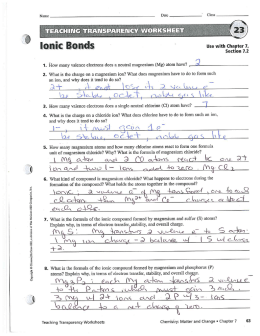 Name Date Class
TEACHING TRANSPARENCY WORKSHEET 23
Ionic Bonds
Use with Chapter 7,
Section 7.2
1. How many valence electrons does a neutral magnesium (Mg) atom have? 2
2. What is the charge on a magnesium ion? What does magnesium have to do to form such
an ion, and why does it tend to do so?
2+ it must lose its 2 valence e⁻
be stable, octet, noble gas like
3. How many valence electrons does a single neutral chlorine (Cl) atom have? 7
4. What is the charge on a chloride ion? What does chlorine have to do to form such an ion,
and why does it tend to do so?
1-, it must gain 1e⁻
be stable octet, noble gas like
5. How many magnesium atoms and how many chlorine atoms react to form one formula
unit of magnesium chloride? Why? What is the formula of magnesium chloride?
1 Mg atom and 2 Cl atoms react be one 2+
ion and two 1- ions to zero Mg Cl
6. What kind of compound is magnesium chloride? What happens to electrons during the
formation of the compound? What holds the atoms together in the compound?
ionic, 2 valence e⁻ of Mg transfered, one to each
Cl atom then Mg2+ and Cl⁻ charges attract
each other
7. What is the formula of the ionic compound formed by magnesium and sulfur (S) atoms?
Explain why, in terms of electron transfer, stability, and overall charge.
MgS; Mg transfers 2 valence e⁻ to S atom
1 Mg ion charge -2 balance w/ 1 S w/ charge
+2
8. What is the formula of the ionic compound formed by magnesium and phosphorus (P)
atoms? Explain why, in terms of electron transfer, stability, and overall charge.
Mg3P2; each Mg atom transfers 2 valence
e⁻ to P atoms which must gain 3 each
3 Mg w/ 2+ ions and 2P w/ 3- ions
balance to a net charge of zero
Teaching Transparency Worksheets Chemistry: Matter and Change • Chapter 7 63